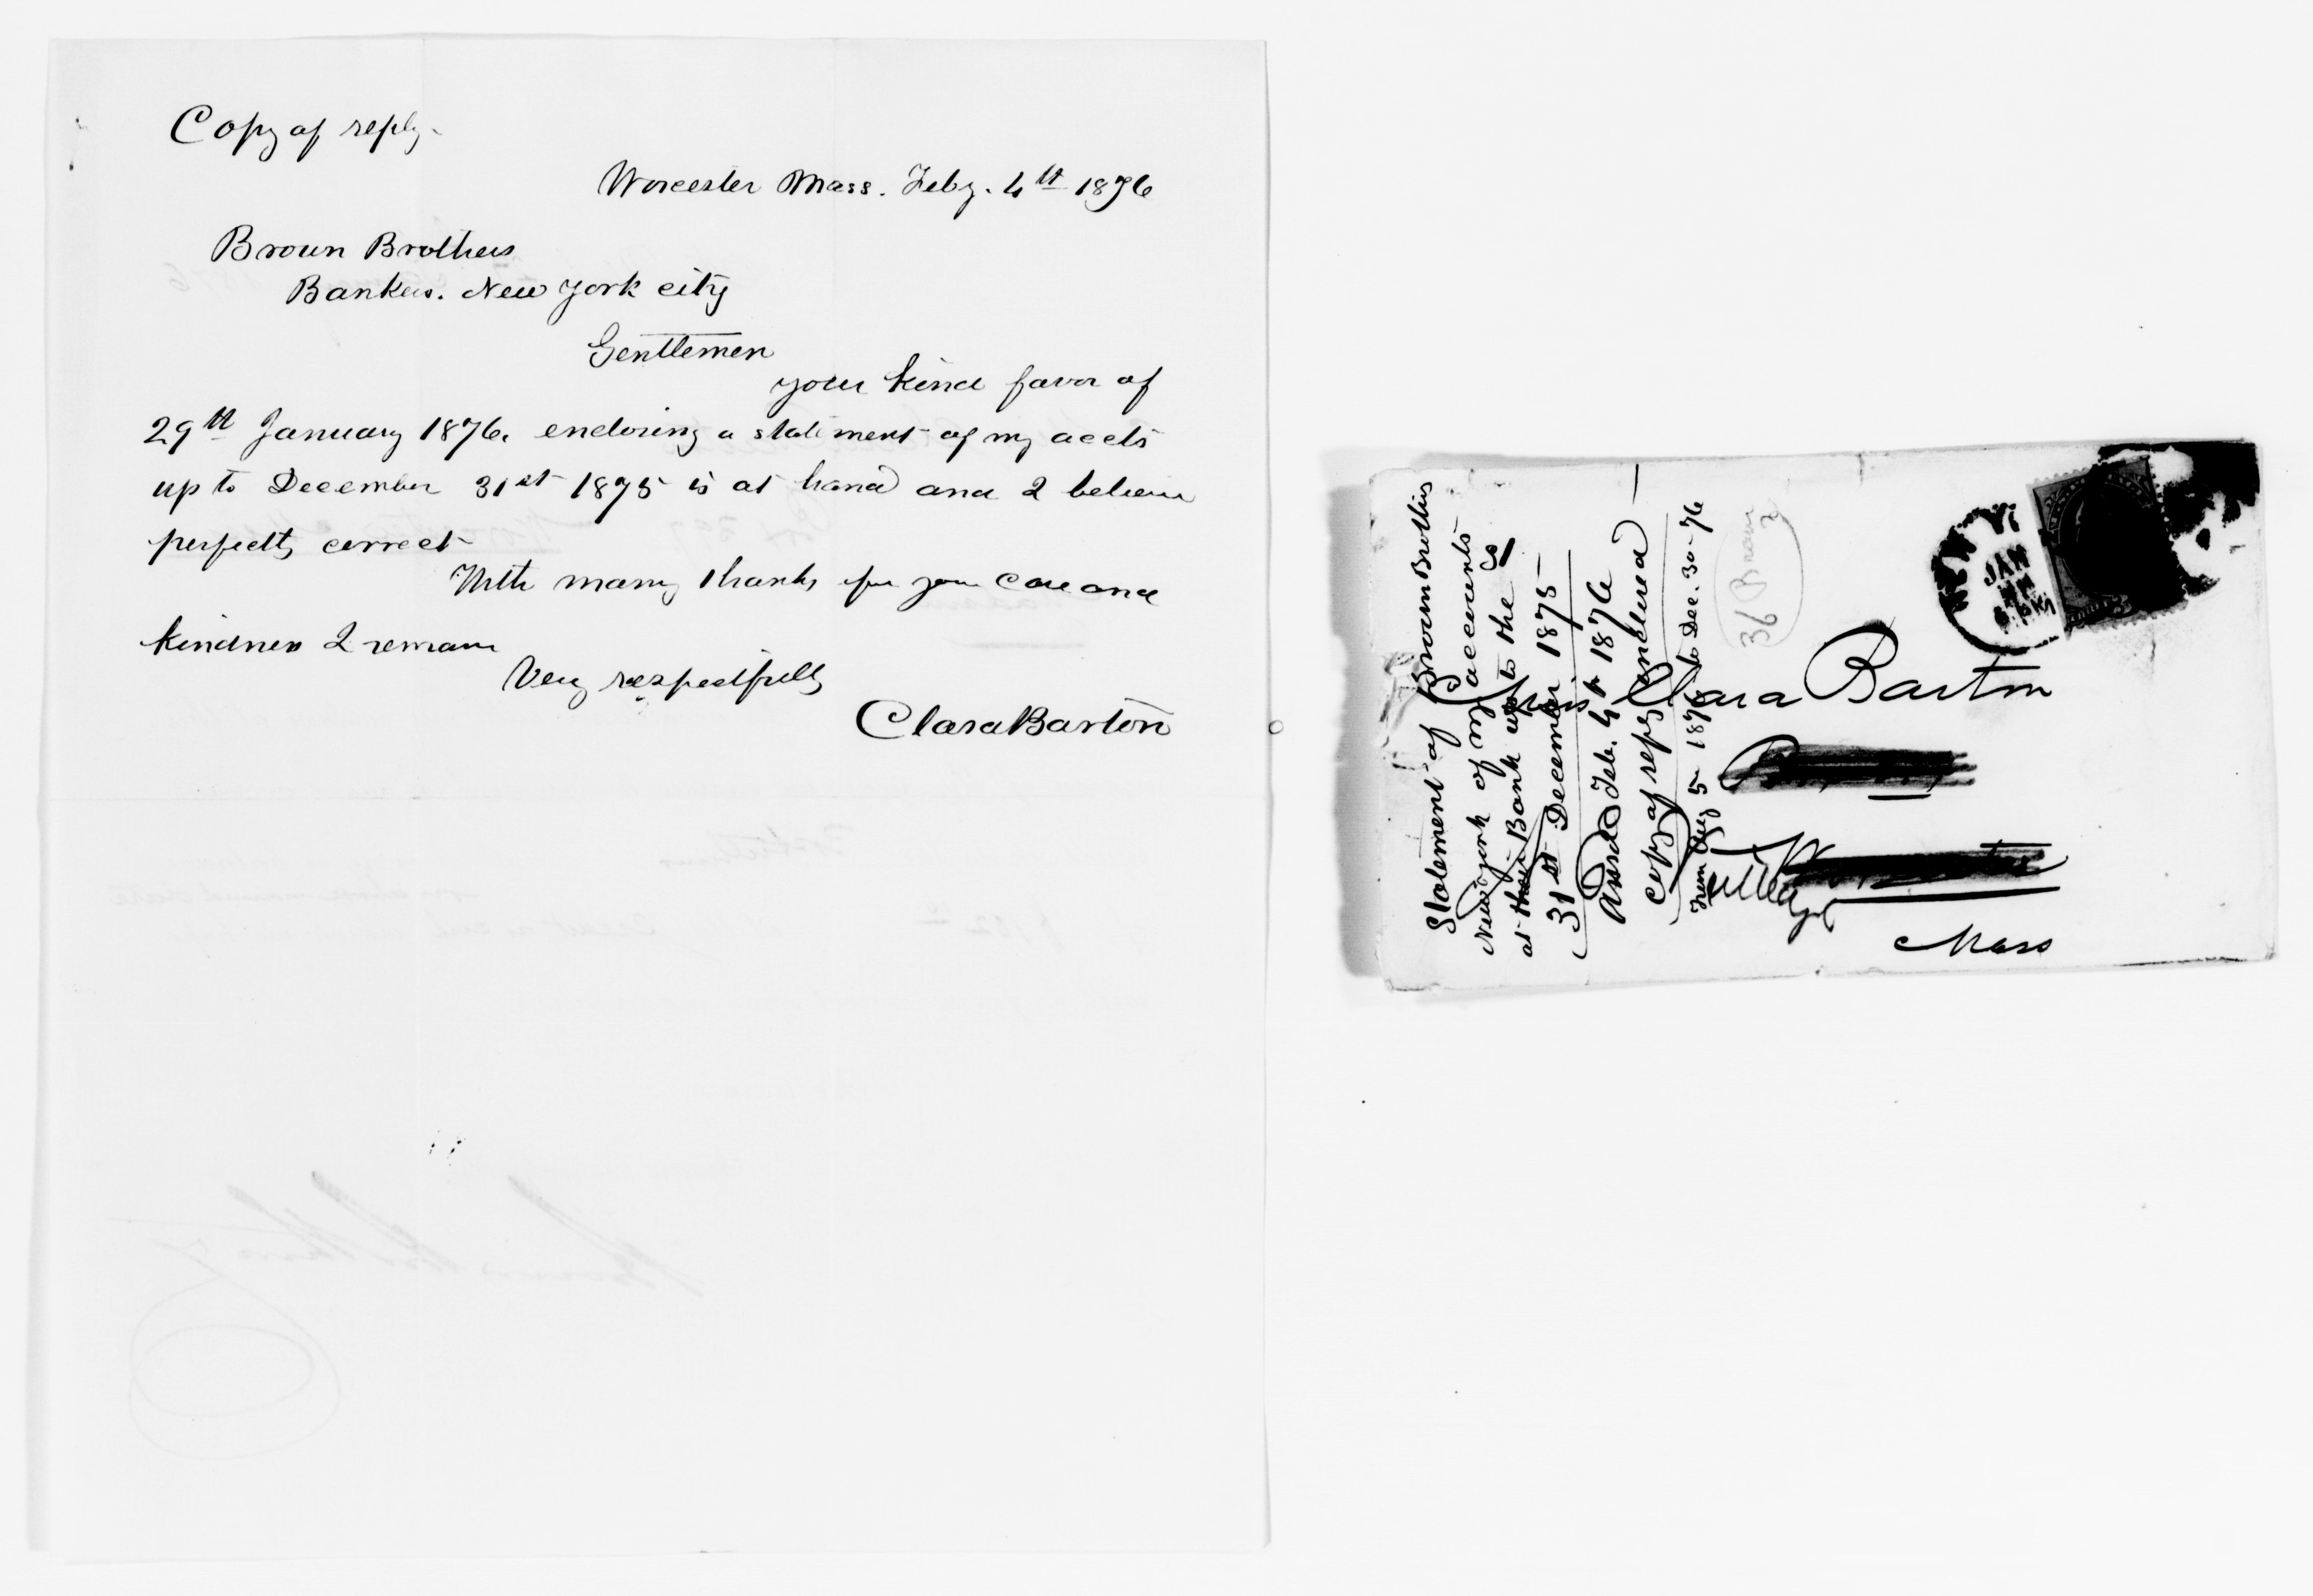 Copy of reply.
Worcester Mass. Feby. 4th 1876
Brown Brothers
Bankers. New York city
Gentlemen
your kind favor of
29th January 1876. enclosing a statement of my accts
up to December 31st 1875 is at hand and I believe
perfectly correct
With many thanks for your care and
kindness I remain
Very respectfully
Clara Barton
Statement of Brown Brothers
New York of my accounts
at their Bank up to the
31st December 1875
Ansd Feb. 4th 1876
copy of reply enclosed
From Aug 5 1875 to Dec. 30-76
36 Brown
2
NEW Y
JAN
Miss Clara Barton
Mass